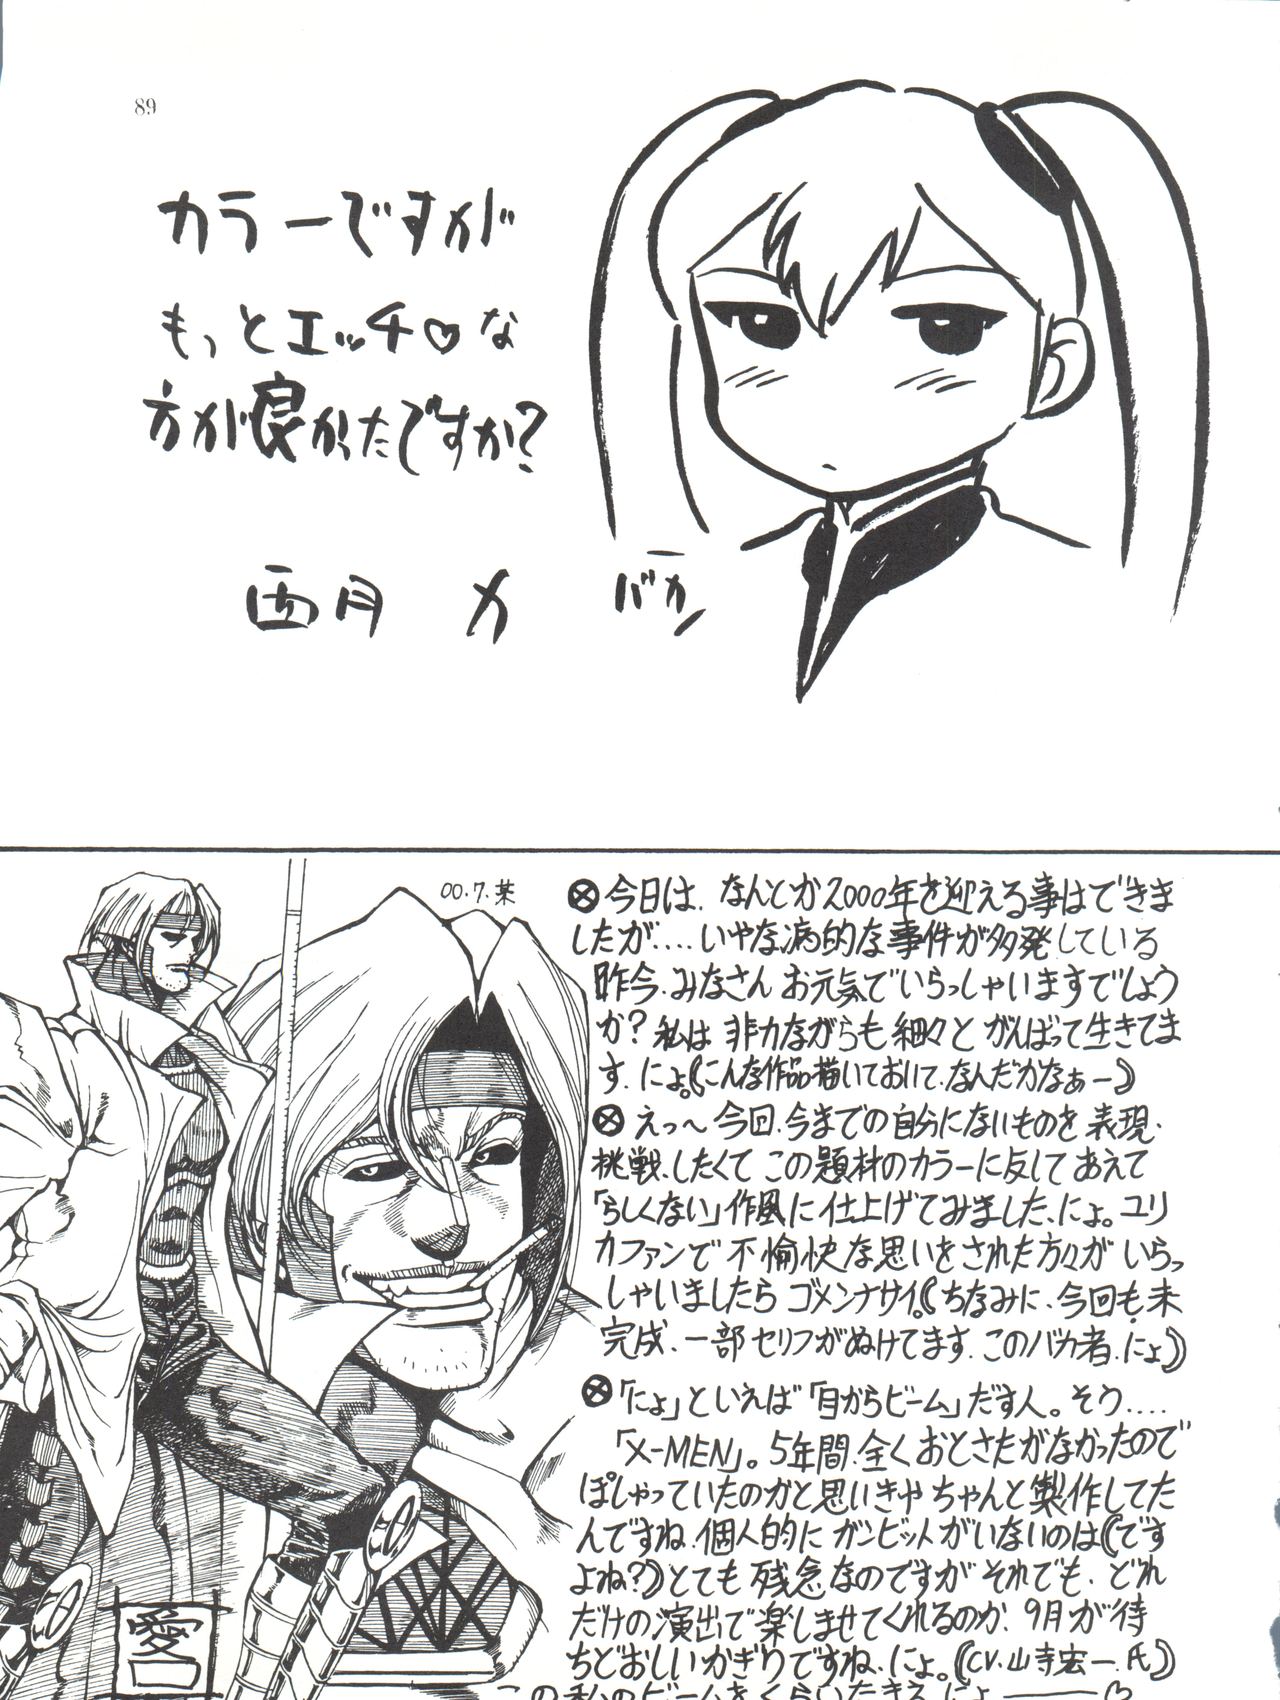 89
カラーですが
もっとエッチ♡な
方が良かったですか?
西月 力
バカ
00.7.某
⊗今日は、なんとか2000年を迎える事はできま
したが....いやな病的な事件が多発している
昨今、みなさんお元気でいらっしゃいますでしょう
か?私は非力ながらも細々とがんばって生きてま
す、にょ。《こんな作品描いておいて、なんだかなぁー》
⊗えっ～今回、今までの自分にないものを表現、
挑戦、したくてこの題材のカラーに反してあえて
「らしくない」作風に仕上げてみました、にょ。ユリ
カファンで不愉快な思いをされた方々がいらっ
しゃいましたらゴメンナサイ。《ちなみに、今回も未
完成、一部セリフがぬけてます、このバカ者、にょ》
⊗「にょ」といえば「目からビーム」だす人。そう....
「X-MEN」。5年間、全くおとさたがなかったので
ぽしゃっていたのかと思いきやちゃんと製作してた
んですね、個人的にガンビットがいないのは《です
よね?》とても残念なのですがそれでも、どれ
だけの演出で楽しませてくれるのか、9月が待
ちどおしいかぎりですね、にょ。《CV.山寺宏一氏》
この私のビームをくらいたまえ にょ
愛